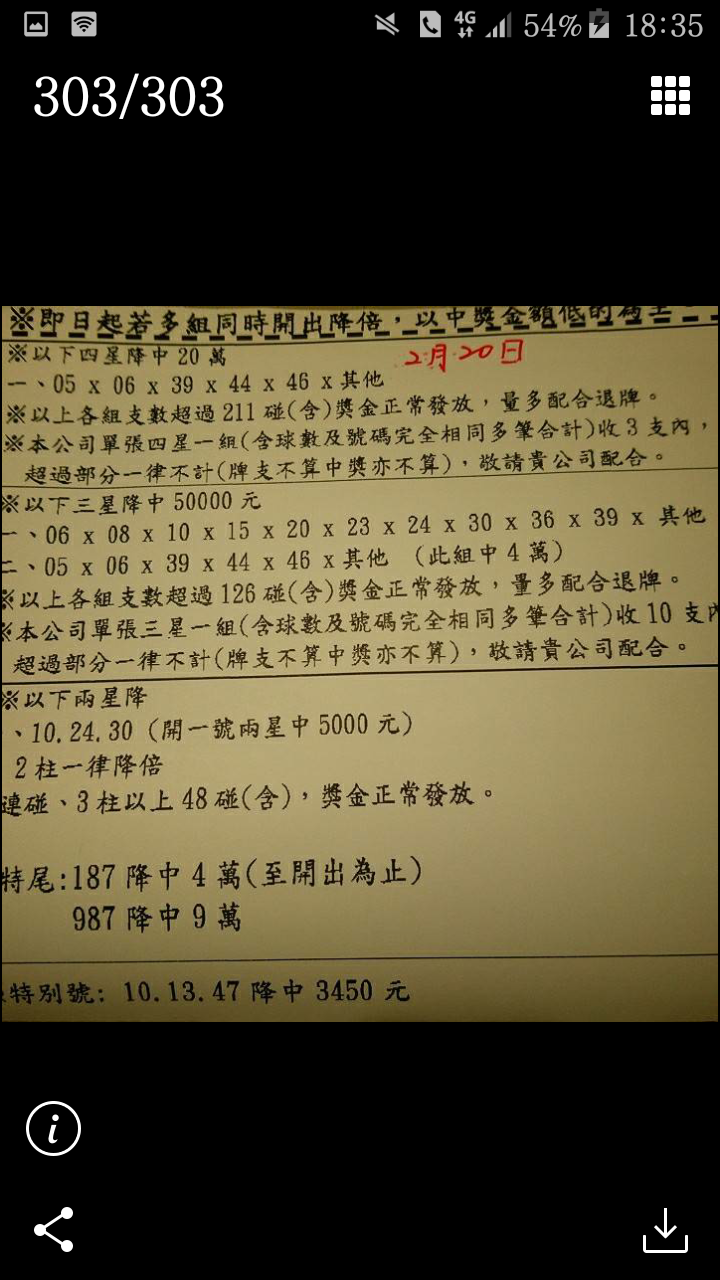 4G 54% 18:35
303/303
※即日起若多組同時開出降倍，以中獎金額低的為主。
※以下四星降中 20 萬
2月20日
一、05 x 06 x 39 x 44 x 46 x 其他
※以上各組支數超過 211 碰(含)獎金正常發放，量多配合退牌。
※本公司單張四星一組(含球數及號碼完全相同多筆合計)收 3 支內，
超過部分一律不計(牌支不算中獎亦不算)，敬請貴公司配合。
※以下三星降中 50000 元
一、06 x 08 x 10 x 15 x 20 x 23 x 24 x 30 x 36 x 39 x 其他
二、05 x 06 x 39 x 44 x 46 x 其他 (此組中 4 萬)
※以上各組支數超過 126 碰(含)獎金正常發放，量多配合退牌。
※本公司單張三星一組(含球數及號碼完全相同多筆合計)收 10 支內
超過部分一律不計(牌支不算中獎亦不算)，敬請貴公司配合。
※以下兩星降
、10.24.30 (開一號兩星中 5000 元)
2 柱一律降倍
連碰、3 柱以上 48 碰(含)，獎金正常發放。
特尾:187 降中 4 萬(至開出為止)
987 降中 9 萬
特別號: 10.13.47 降中 3450 元